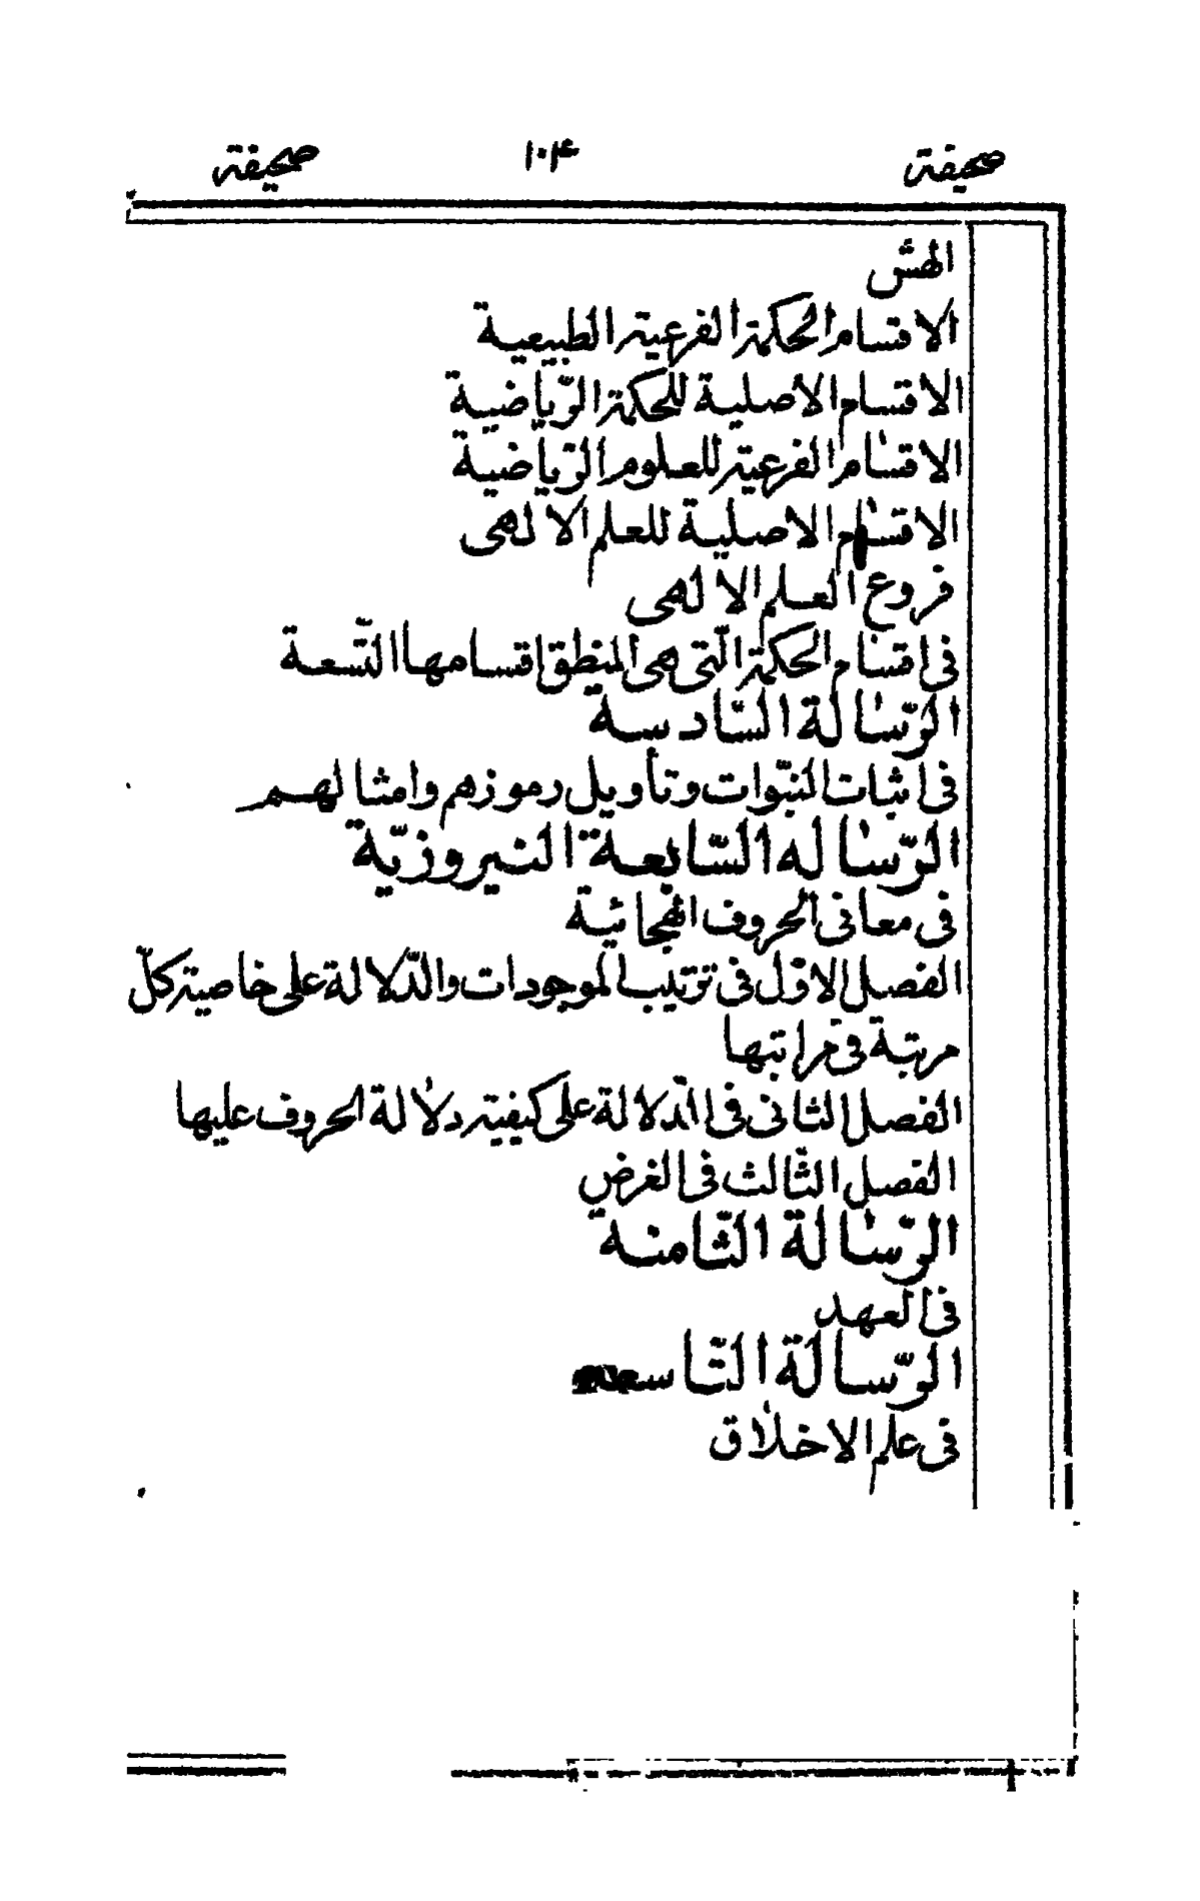 صحيفة ١٠٤ صحيفة
الاقسام الحكمة الفرعية الطبيعية
الاقسام الاصلية للحكمة الرّياضية
الاقسام الفرعية للعلوم الرّياضية
الاقسام الاصلية للعلم الالهى
فروع العلم الالهى
فى اقسام الحكمة الّتى هى المنطق اقسامها التّسعة
الرّسالة السّادسة
فى اثبات النبّوات وتأويل رموزهم وامثالهم
الرّساله السّابعة النيروزيّة
فى معانى الحروف الهجائية
الفصل الاوّل فى ترتيب الموجودات والدّلالة على خاصية كلّ
مرتبة فى مراتبها
الفصل الثانى فى الدّلالة على كيفية دلالة الحروف عليها
الفصل الثّالث فى الغرض
الرّسالة الثّامنة
فى العهد
الرّسالة التّاسعه
فى علم الاخلاق